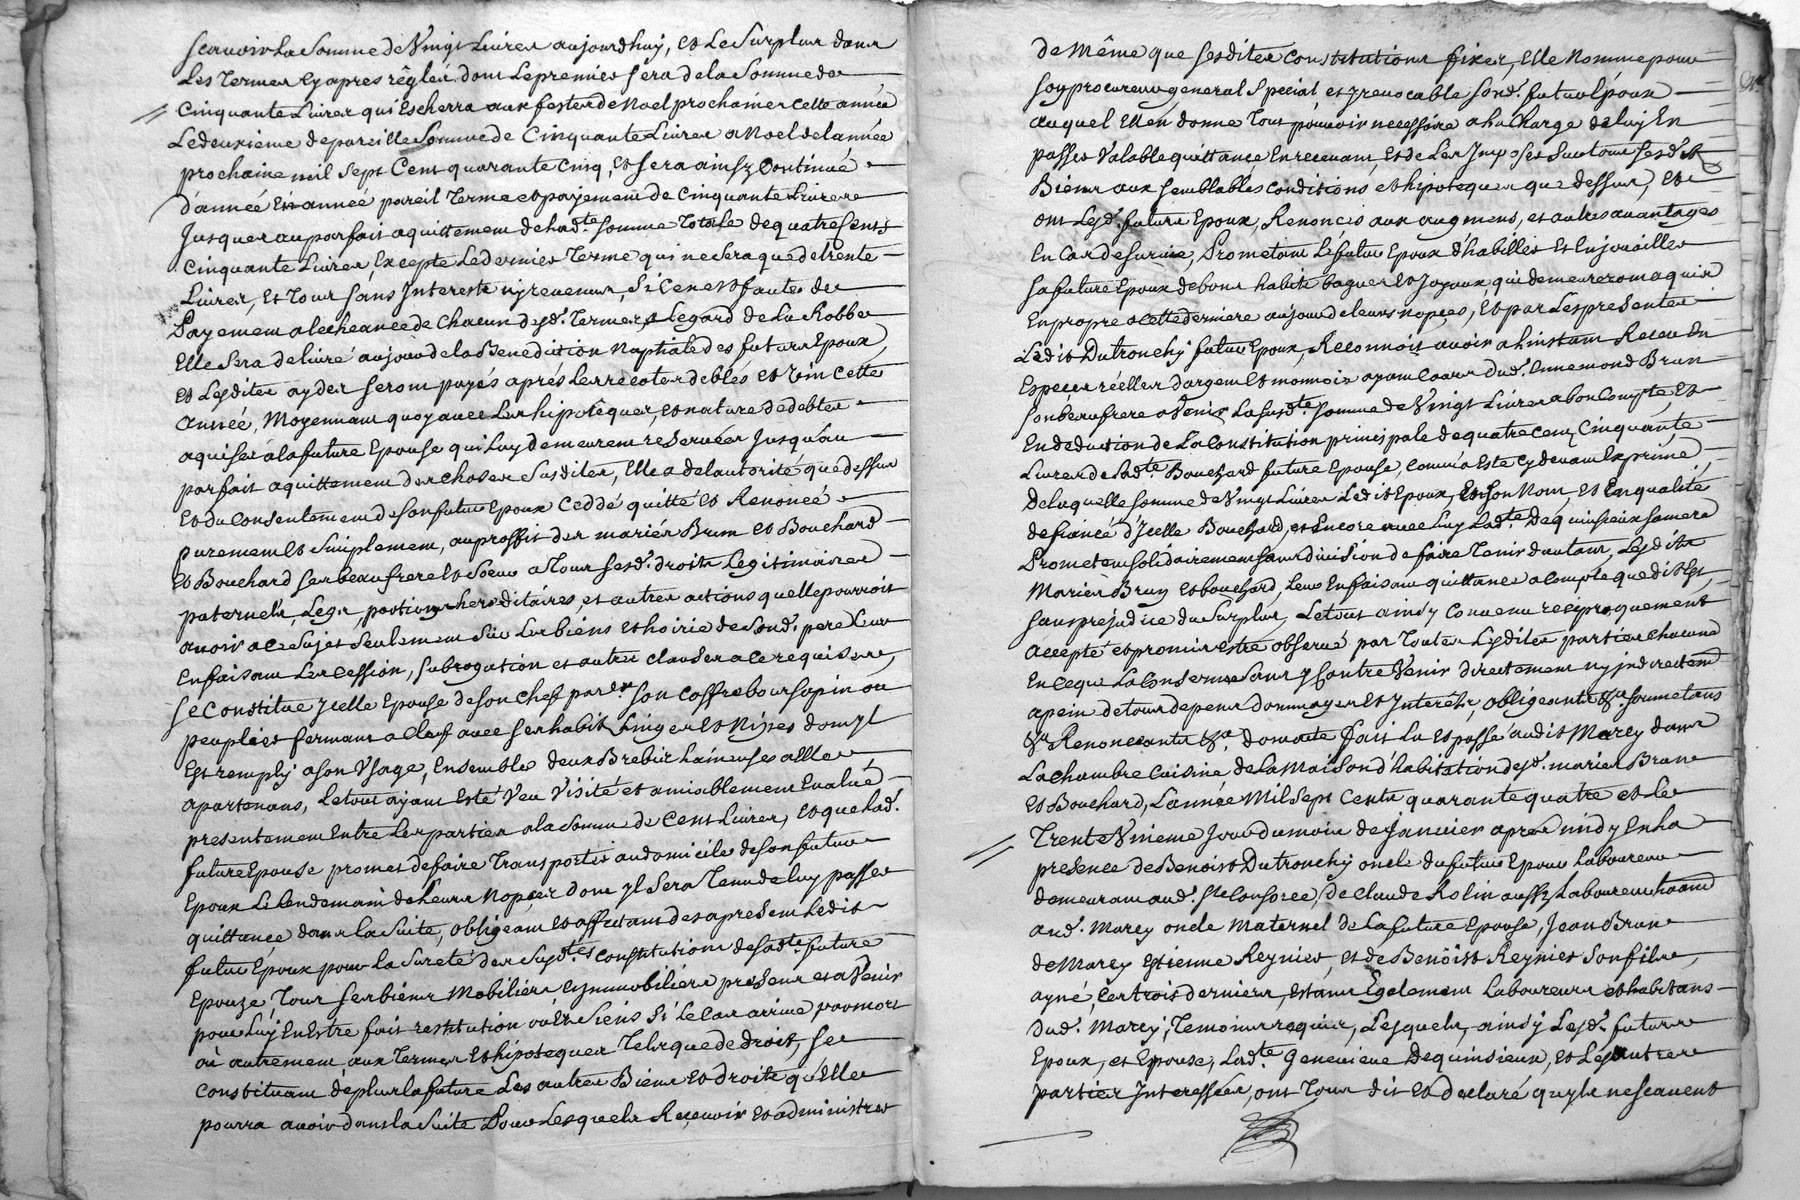 scavoir la somme de Vingt Livres aujourdhuy, et Le Surplus dans
Les Termes cy apres réglés dont Le premier sera de la Somme de
Cinquante Livres qui Escherra aux festes de Noel prochaines cette année
Le deuxieme de pareille Somme de Cinquante Livres a Noel de l'année
prochaine mil sept Cent quarante cinq, et sera ainsy Continué
d'année En année pareil Terme et payement de Cinquante Livres
Jusques au parfait aquittement de lad.te somme Totale de quatre Cents
Cinquante Livres, Excepte Le dernier Terme qui ne sera que de trente
Livres, et Tour sans Interests ny revenus, Si ce n'est faute de
Payement a lecheance de Chacun desd. Termes, a Legard de La Robbe
Elle sera delivré au jour de la Benediction Nuptiale des futurs Epoux
et Lesdites aydes seront payés aprés Les recoltes de blés et vin cette
année, Moyennant quoy avec Les hipotêques, et nature de debtes
aquises á la future Epouse qui Luy demeurent reservées Jusqu'au
parfait aquittement des choses Susdites, Elle a de lautorité que dessus
et du Consentement de son futur Epoux Ceddé quitté et Renoncé
purement et Simplement, au proffit des mariés Brun et Bouchard
et Bouchard ses beau frere et Soeur a Tous sesd. droits Legitimaires
paternels, Legs, portions hereditaires, et autres actions quelle pourroit
avoir a ce Sujet Seulement Sur Les biens et hoirie de Sond. pere Leur
En faisant Les cession, subrogation et autres clauses a ce requises,
Se Constitue ycelle Epouse de son Chef par Son coffre bour sapin ou
peuplier fermant a Clef avec ses habits Linges et Nipes dont Il
Est remply a son Usage, Ensemble deux Brebis Laineuses a Elle
apartenans, Le tout ayant Esté Veu Visité et amiablement Evalué
presentement Entre Les parties a la Somme de Cent Livres, et que lad.
future Epouse promet de faire Transporter au domicile de son futur
Epoux Le Lendemain de Leurs Nopces dont yl Sera Tenu de luy passer
quittance dans la Suite, obligeant et affectant des apresent Ledit
futur Epoux pour la Sureté des Susd.tes constitutions de sad.te future
Epouze, Tous ses biens Mobiliers Et ymmobiliers presens et a Venir
pour Luy En Estre fait restitution ou Es Siens Si Le Cas arrive par mort
oû autrement, aux Termes Et hipoteques Tels que de droit, Se
Constituant deplus la future Les autres Biens et droits qu'Elle
pourra avoir dans la Suite Pour Lesquels Recevoir et administrer
de Même que sesdites Constitutions fixes, Elle Nomme pour
son procureur general Special et yrevocable sond. futur Epoux
auquel Elle en donne Tout pouvoir necessaire a la Charge de luy En
passer Valable quittance En recevant, et de Les Imposer Sur tous sesdits
Biens aux semblables conditions et hipoteques que dessus, et
ont Lesd. futurs Epoux, Renoncés aux augmens, et autres avantages
En Cas de Survie, Prometant Le futur Epoux d'habiller Et Enjoailler
sa future Epoux de bons habits bagues et Joyaux, qui demeureront aquis
En propre a cette derniere au jour de leurs nopces, Et par Les presentes
Ledit Dutronchy futur Epoux, Reconnoit avoir a linstant Receu En
Especes réelles d'argent et monnoie ayant cours dud. Ennemond Brun
son beau frere a Venir La Susd.te Somme de Vingt Livres a bon Compte, Et
En deduction de La Constitution principale de quatre cent Cinquante
Livres de Lad.te Bouchard future Epouse, comme a Este cy devant Exprimé,
De laquelle Somme de Vingt Livres Ledit Epoux, En Son Nom, et En qualité
de fiancé d'Icelle Bouchard, et Encore avec Luy Lad.te Dequinsieux sa mere
Promettent solidairement sans division de faire Tenir d'autant, Lesdits
Mariés Brun et bouchard, Leur En faisant quittance a Compte que dit Est,
sans prejudice du Surplus, Le tout ainsy Convenu reciproquement
accepté et promis estre observé par toutes Lesdites parties chacune
En ce qui La Concerne Sans y Contre Venir directement ny indirectem.t
a pein de tous depens dommages et Interêts, obligeants &a. soumetans
&a Renonceants &a. dont acte fait lu et passé audit Marcy dans
La chambre Cuisine de La Maison d'habitation desd. mariés Brun
et Bouchard, L'année Mil Sept Cents quarante quatre et Le
Trente Unieme Jour du mois de Janvier aprés midy En la
presence de Benoist Dutronchy oncle du futur Epoux Laboureur
demeurant aud. Ste Consorce, de Claude Rolin aussy Laboureur
aud. Marcy oncle Maternel de La future Epouse, Jean Brun
de Marcy Etienne Reynier, et de Benoist Reynier Son fils
ayné, Ces trois derniers, Estant Egalement Laboureurs et habitans
dud. Marcy, Temoins requis, Lesquels, ainsy Lesd. futurs
Epoux, et Epouse, Lad.te Genevieve Dequinsieux, et Les autres
parties Interessées, ont Tous dit et declaré quyls ne scavent